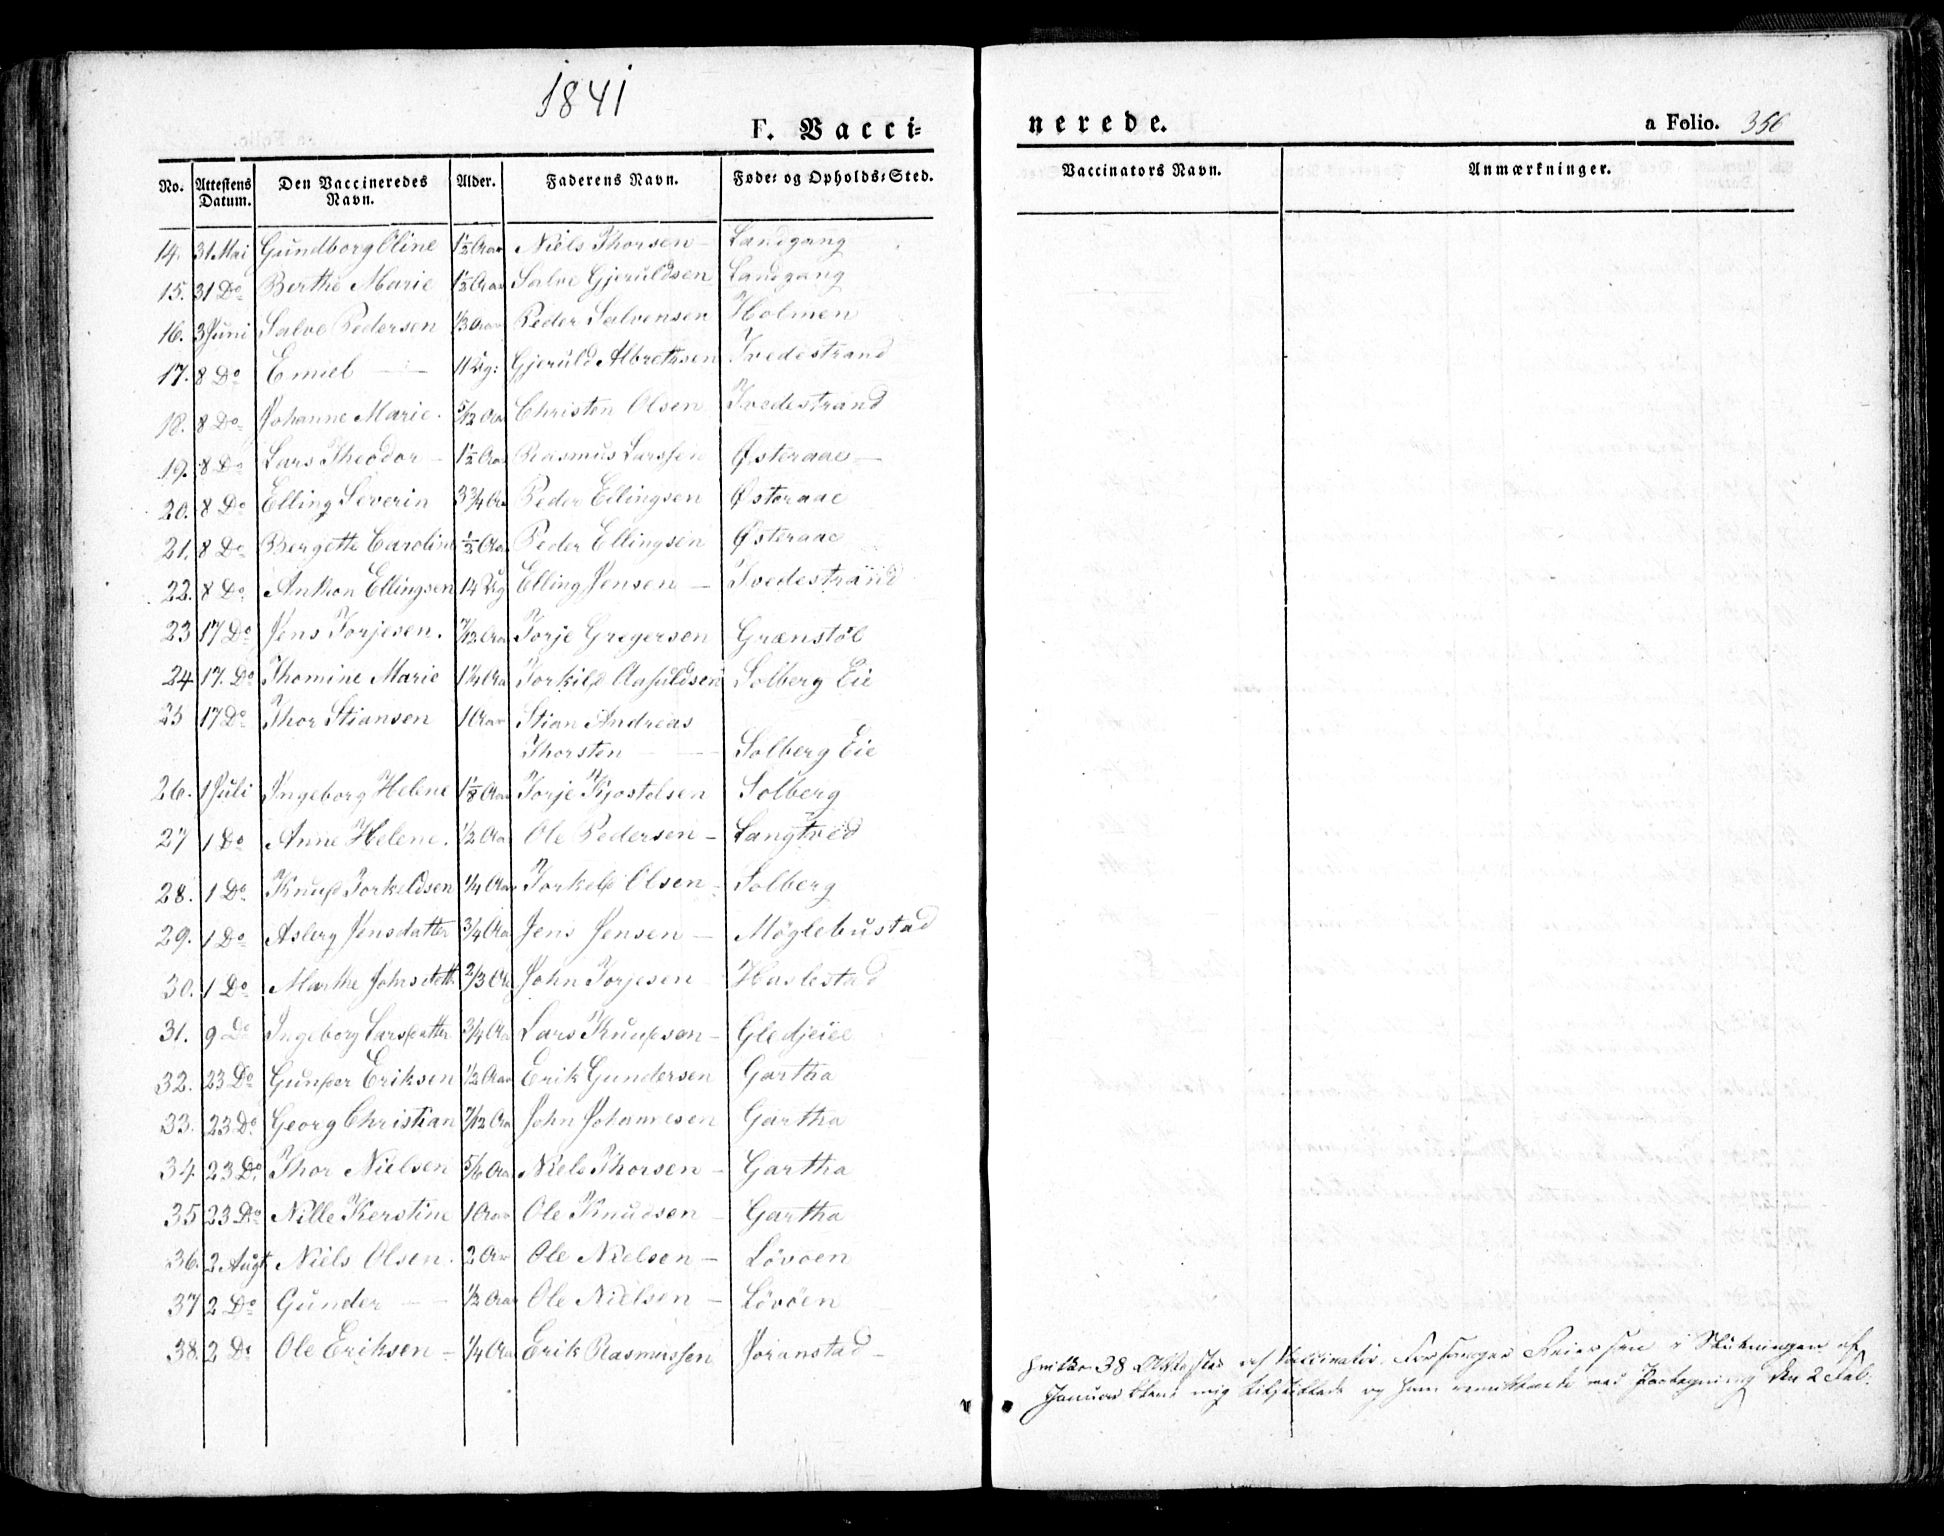 1841
F. Vacci-
nerede.
a Folio. 356
No. Attestens Datum. Den Vaccineredes Navn. Alder. Faderens Navn. Føde- og Opholds-Sted. Vaccinators Navn. Anmærkninger.
14. 31 Mai Gundborg Oline 1½ Aar Niels Thorsen – Landgang
15. 31 Do Berthe Marie 1½ Aar Salve Gjeruldsen Landgang
16. 3 Juni Salve Pedersen 1/3 Aar Peder Salvensen Holmen
17. 8 Do Emiel – 11 Ug: Gjeruld Albretsen Tvedestrand
18. 8 Do Johanne Marie. 5/12 Aar Christen Olsen Tvedestrand
19. 8 Do Lars Theodor – 1½ Aar Rasmus Larssen Østeraae –
20. 8 Do Elling Severin 3 3/4 Aar Peder Ellingsen Østeraae
21. 8 Do Bergethe Caroline ½ Aar Peder Ellingsen Østeraae
22. 8 Do Anthon Ellingsen 14 Ug Elling Jensen – Tvedestrand
23 17 Do Jens Torjesen. 7/12 Aar Torje Gregersen Grænstøl
24 17. Do Thomine Marie 1¼ Aar Torkild Aasuldsen Solberg Eie
25 17 Do Thor Stiansen 1 Aar Stian Andreas
Thorsten – Solberg Eie
26. 1 Juli Ingeborg Helene 1⅛ Aar Torje Kjostelsen Solberg
27 1 Do Anne Helene. 1/2 Aar Ole Pedersen – Langtved
28. 1 Do Knud Torkeldsen 1/4 Aar Torkeld Olsen – Solberg
29. 1 Do Asberg Jensdatter 3/4 Aar Jens Jensen – Møglebustad
30. 1 Do Marthe Johnsdatt. 2/3 Aar John Torjesen Haslestad
31. 9 Do Ingeborg Larsdatter 3/4 Aar Lars Knudsen – Gledjeiee
32. 23 Do Gunder Eriksen 1/2 Aar Erik Gundersen Gartha
33. 23 Do Georg Christian 7/12 Aar John Johannesen Gartha
34 23 Do Thor Nielsen 5/6 Aar Niels Thorsen – Gartha
35 23 Do Nille Kerstine 1 Aar Ole Knudsen – Gartha
36. 2 Augt Niels Olsen. 2 Aar Ole Nielsen – Løvøen
37 2 Do Gunder – 1/2 Aar Ole Nielsen – Løvøen
38. 2 Do Ole Eriksen – 1/4 Aar Erik Rasmussen Joranstad –
hvilke 38 Attester af Vaccinatør Forsanger Reiersen i Slutningen af
Januar bleve mig tilstillede og ham remitterede med Paategning den 2 Feb.